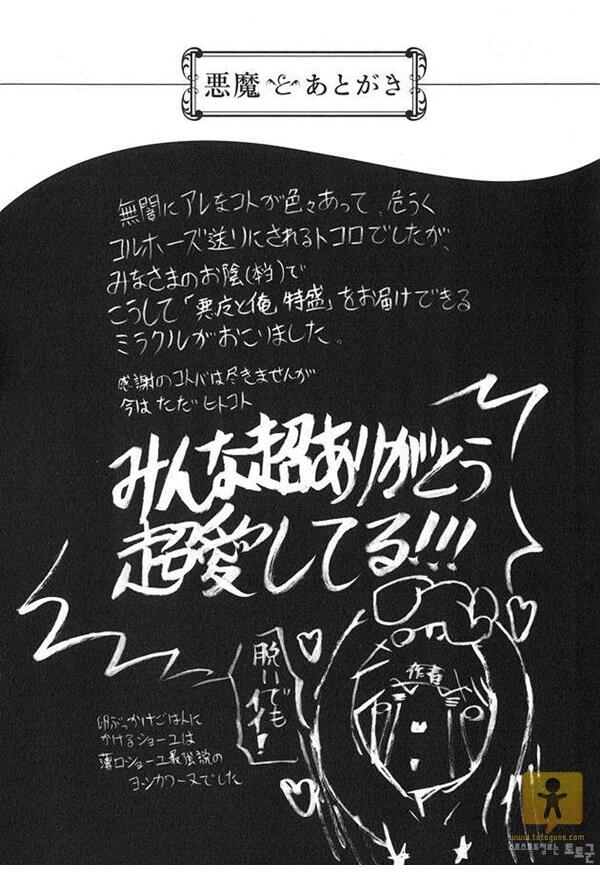 悪魔とあとがき
無闇にアレなコトが色々あって、危うく
コルホーズ送りにされるトコロでしたが、
みなさまのお陰(本当)で
こうして「悪魔と俺 特盛」をお届けできる
ミラクルがおこりました。
感謝のコトバは尽きませんが
今はただヒトコト
みんな超ありがとう
超愛してる!!!
脱いでも
イイ!
作者
卵ぶっかけごはんに
かけるショーユは
薄口ショーユ最強説の
ヨンカワーヌでした
www.totoguns.com
토토군